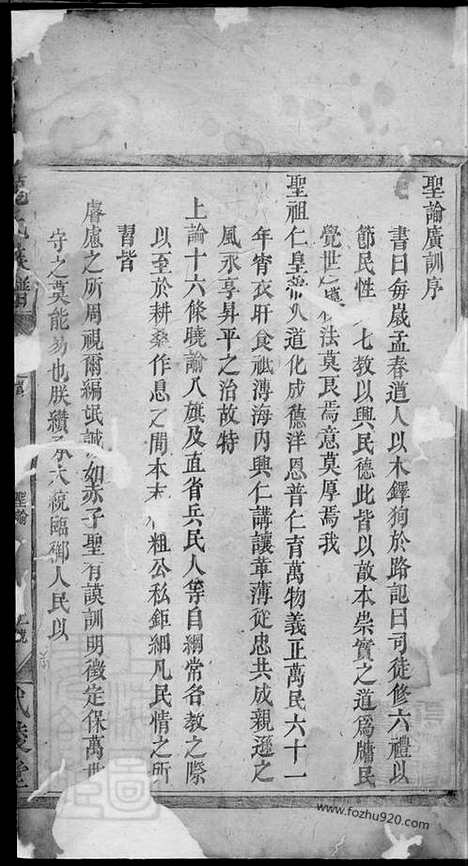 聖諭廣訓序
書曰每歲孟春道人以木鐸狥於路記曰司徒修六禮以
節民性 七教以興民德此皆以敦本崇實之道爲牖民
覺世之 法莫良焉意莫厚焉我
聖祖仁皇帝久道化成德洋恩普仁育萬物義正萬民六十一
年宵衣旰食祗溥海內興仁講讓革薄從忠共成親遜之
風永享昇平之治故特
上諭十六條曉諭八旗及直省兵民人等自綱常名教之際
以至於耕桑作息之間本末 粗公私鉅細凡民情之所
習皆
睿慮之所周視爾編氓誠如赤子聖有謨訓明徵定保萬世
守之莫能易也朕纘承大統臨御人民以
聖諭
www.fozhu920.com